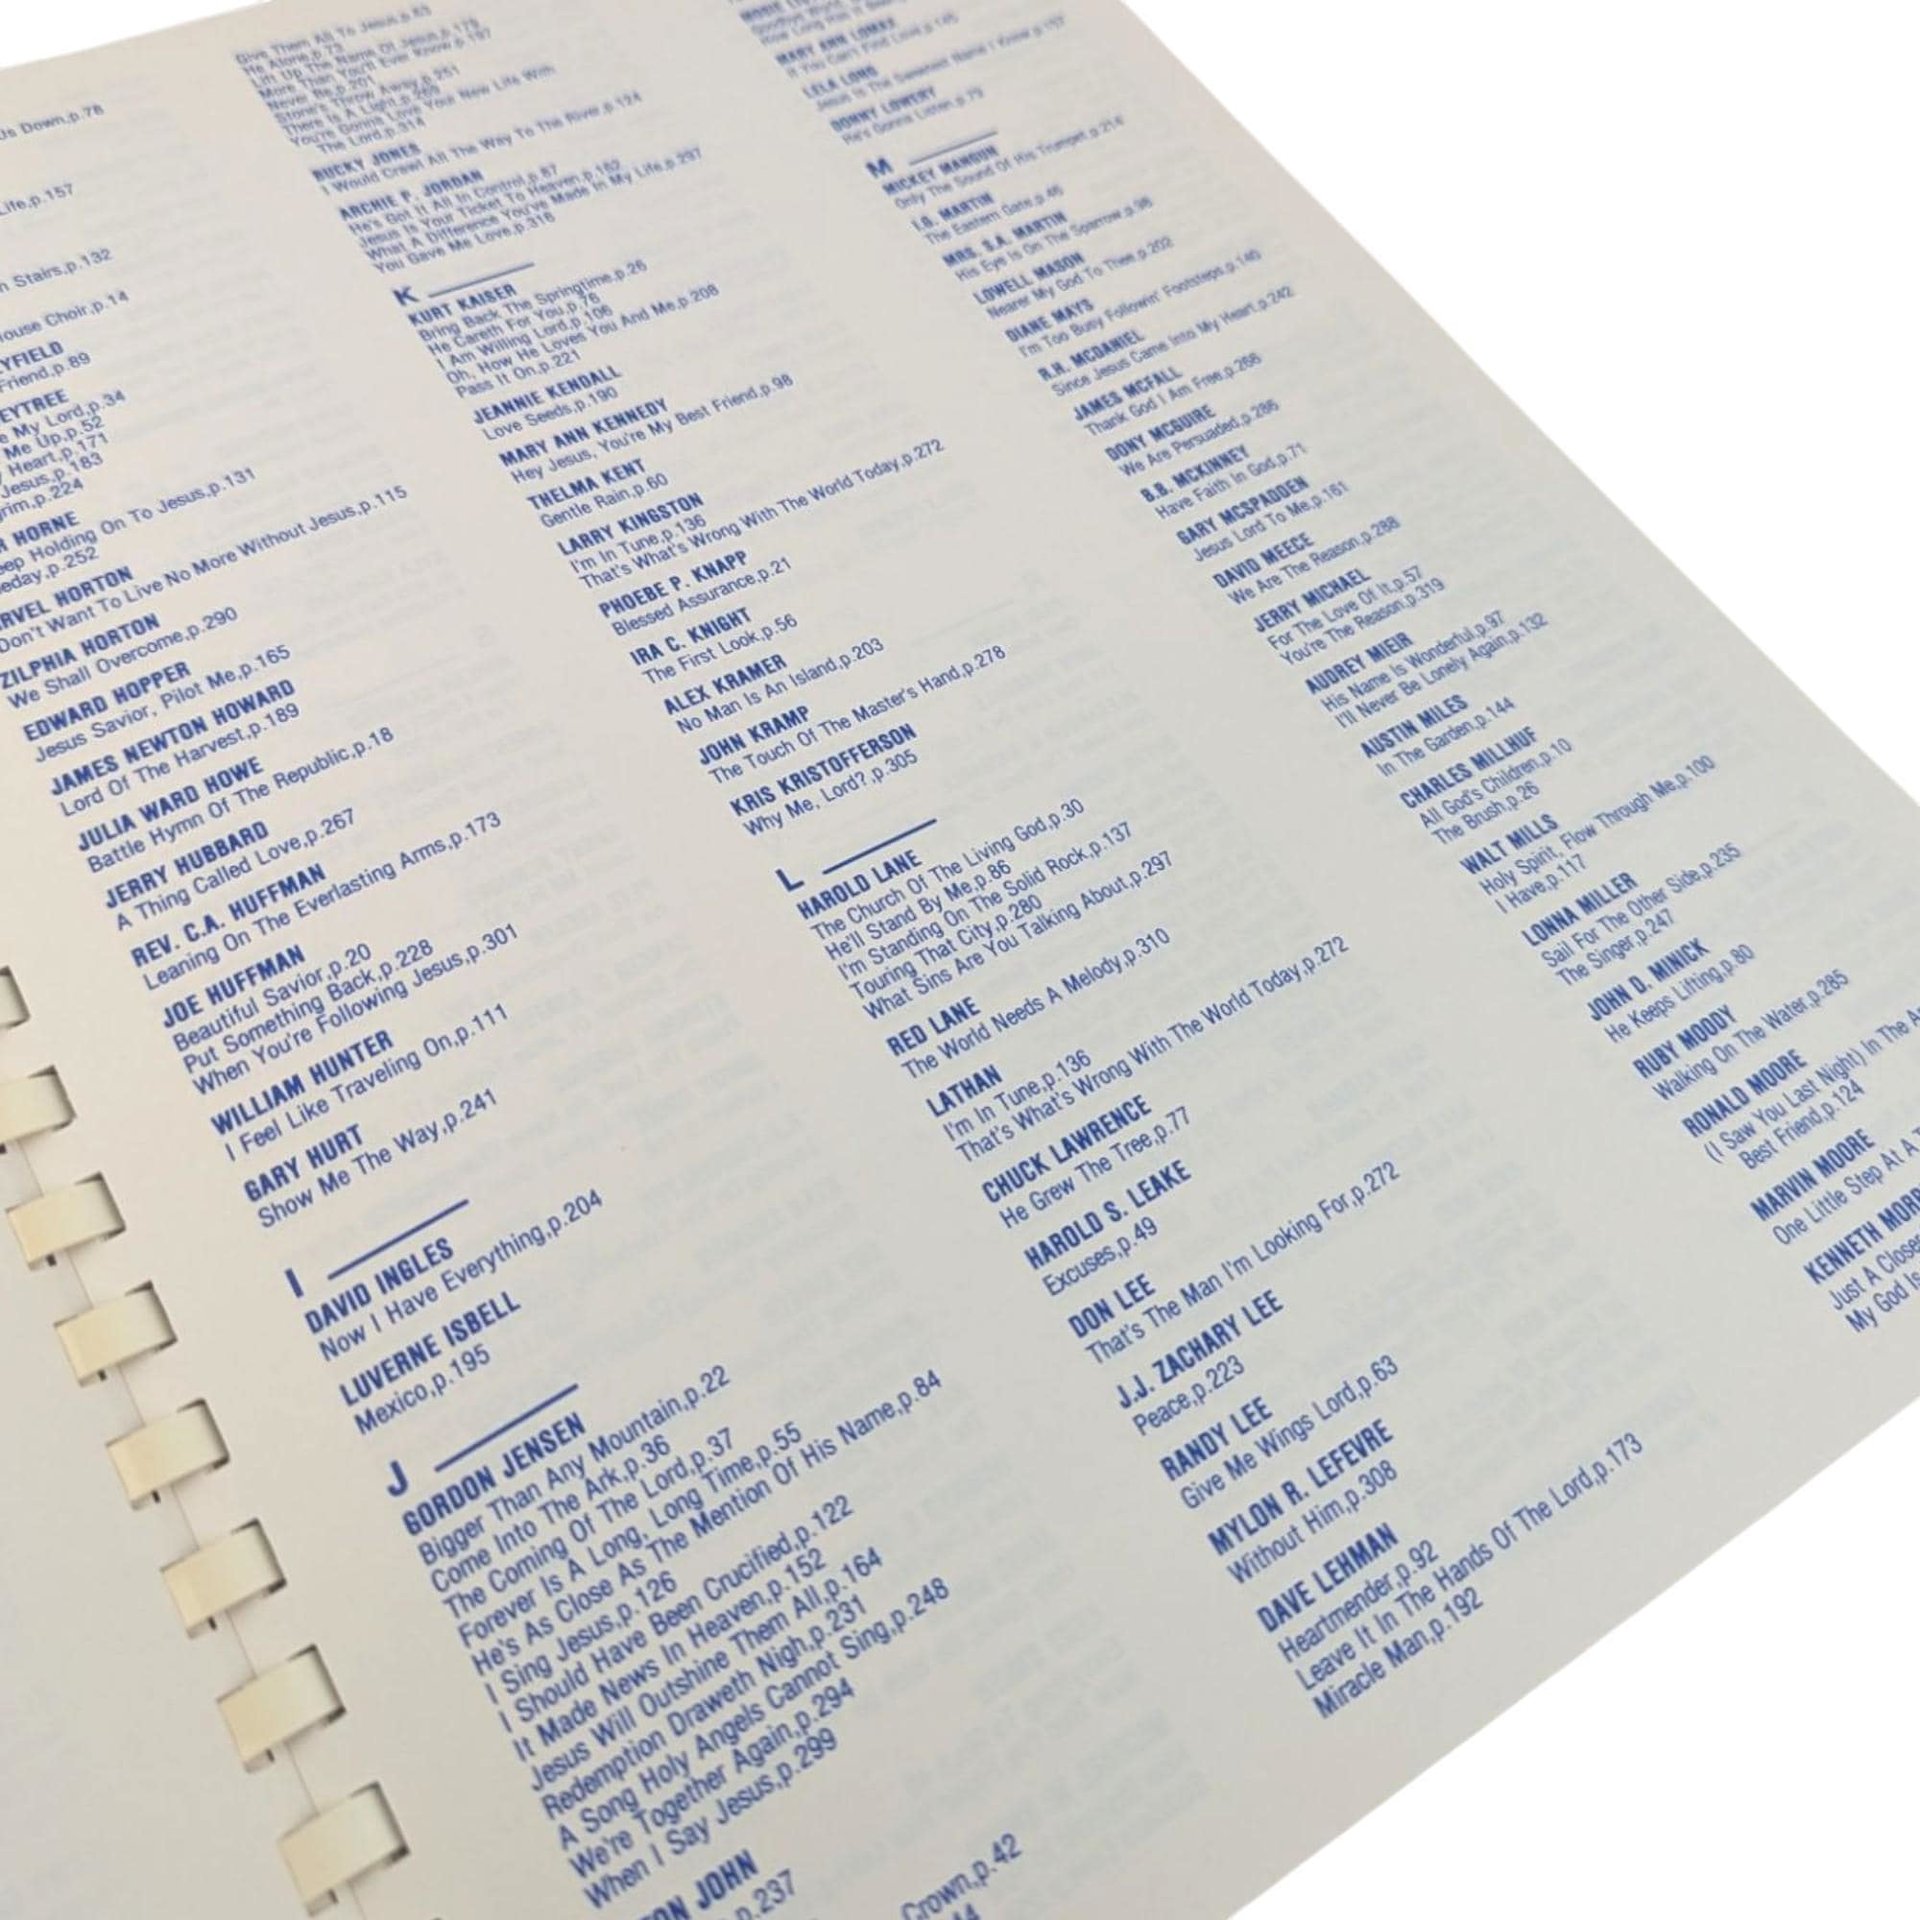 Us Down,p.78
Life,p.157
n Stairs,p.132
House Choir,p.14
YFIELD
Friend,p.89
EYTREE
e My Lord,p.34
Me Up,p.52
Heart,p.171
Jesus,p.183
grim,p.224
R HORNE
eep Holding On To Jesus,p.131
eday,p.252
RVEL HORTON
Don't Want To Live No More Without Jesus,p.115
ZILPHIA HORTON
We Shall Overcome,p.290
EDWARD HOPPER
Jesus Savior, Pilot Me,p.165
JAMES NEWTON HOWARD
Lord Of The Harvest,p.189
JULIA WARD HOWE
Battle Hymn Of The Republic,p.18
JERRY HUBBARD
A Thing Called Love,p.267
REV. C.A. HUFFMAN
Leaning On The Everlasting Arms,p.173
JOE HUFFMAN
Beautiful Savior,p.20
Put Something Back,p.228
When You're Following Jesus,p.301
WILLIAM HUNTER
I Feel Like Traveling On,p.111
GARY HURT
Show Me The Way,p.241
I
DAVID INGLES
Now I Have Everything,p.204
LUVERNE ISBELL
Mexico,p.195
J
GORDON JENSEN
Bigger Than Any Mountain,p.22
Come Into The Ark,p.36
The Coming Of The Lord,p.37
Forever Is A Long, Long Time,p.55
He's As Close As The Mention Of His Name,p.84
I Sing Jesus,p.126
I Should Have Been Crucified,p.122
It Made News In Heaven,p.152
Jesus Will Outshine Them All,p.164
Redemption Draweth Nigh,p.231
A Song Holy Angels Cannot Sing,p.248
We're Together Again,p.294
When I Say Jesus,p.299
TON JOHN
p.237
Crown,p.42
44
Give Them All To Jesus,p.63
He Alone,p.73
Lift Up The Name Of Jesus,p.178
More Than You'll Ever Know,p.197
Never Be,p.201
Stone's Throw Away,p.251
There Is A Light,p.269
You're Gonna Love Your New Life With
The Lord,p.314
BUCKY JONES
I Would Crawl All The Way To The River,p.124
ARCHIE P. JORDAN
He's Got It All In Control,p.87
Jesus Is Your Ticket To Heaven,p.162
What A Difference You've Made In My Life,p.297
You Gave Me Love,p.316
K
KURT KAISER
Bring Back The Springtime,p.26
He Careth For You,p.76
I Am Willing Lord,p.106
Oh, How He Loves You And Me,p.208
Pass It On,p.221
JEANNIE KENDALL
Love Seeds,p.190
MARY ANN KENNEDY
Hey Jesus, You're My Best Friend,p.98
THELMA KENT
Gentle Rain,p.60
LARRY KINGSTON
I'm In Tune,p.136
That's What's Wrong With The World Today,p.272
PHOEBE P. KNAPP
Blessed Assurance,p.21
IRA C. KNIGHT
The First Look,p.56
ALEX KRAMER
No Man Is An Island,p.203
JOHN KRAMP
The Touch Of The Master's Hand,p.278
KRIS KRISTOFFERSON
Why Me, Lord?,p.305
L
HAROLD LANE
The Church Of The Living God,p.30
He'll Stand By Me,p.86
I'm Standing On The Solid Rock,p.137
Touring That City,p.280
What Sins Are You Talking About,p.297
RED LANE
The World Needs A Melody,p.310
LATHAN
I'm In Tune,p.136
That's What's Wrong With The World Today,p.272
CHUCK LAWRENCE
He Grew The Tree,p.77
HAROLD S. LEAKE
Excuses,p.49
DON LEE
That's The Man I'm Looking For,p.272
J.J. ZACHARY LEE
Peace,p.223
RANDY LEE
Give Me Wings Lord,p.63
MYLON R. LEFEVRE
Without Him,p.308
DAVE LEHMAN
Heartmender,p.92
Leave It In The Hands Of The Lord,p.173
Miracle Man,p.192
MARY ANN LOMAX
If You Can't Find Love,p.145
LELA LONG
Jesus Is The Sweetest Name I Know,p.157
DONNY LOWERY
He's Gonna Listen,p.79
M
MICKEY MANGUN
Only The Sound Of His Trumpet,p.214
I.G. MARTIN
The Eastern Gate,p.46
MRS. S.A. MARTIN
His Eye Is On The Sparrow,p.96
LOWELL MASON
Nearer My God To Thee,p.202
DIANE MAYS
I'm Too Busy Followin' Footsteps,p.140
R.H. MCDANIEL
Since Jesus Came Into My Heart,p.242
JAMES MCFALL
Thank God I Am Free,p.266
DONY MCGUIRE
We Are Persuaded,p.286
B.B. MCKINNEY
Have Faith In God,p.71
GARY MCSPADDEN
Jesus Lord To Me,p.161
DAVID MEECE
We Are The Reason,p.288
JERRY MICHAEL
For The Love Of It,p.57
You're The Reason,p.319
AUDREY MIEIR
His Name Is Wonderful,p.97
I'll Never Be Lonely Again,p.132
AUSTIN MILES
In The Garden,p.144
CHARLES MILLHUF
All God's Children,p.10
The Brush,p.26
WALT MILLS
Holy Spirit, Flow Through Me,p.100
I Have,p.117
LONNA MILLER
Sail For The Other Side,p.235
The Singer,p.247
JOHN D. MINICK
He Keeps Lifting,p.80
RUBY MOODY
Walking On The Water,p.285
RONALD MOORE
(I Saw You Last Night) In The A
Best Friend,p.124
MARVIN MOORE
One Little Step At A T
KENNETH MORR
Just A Closer
My God Is